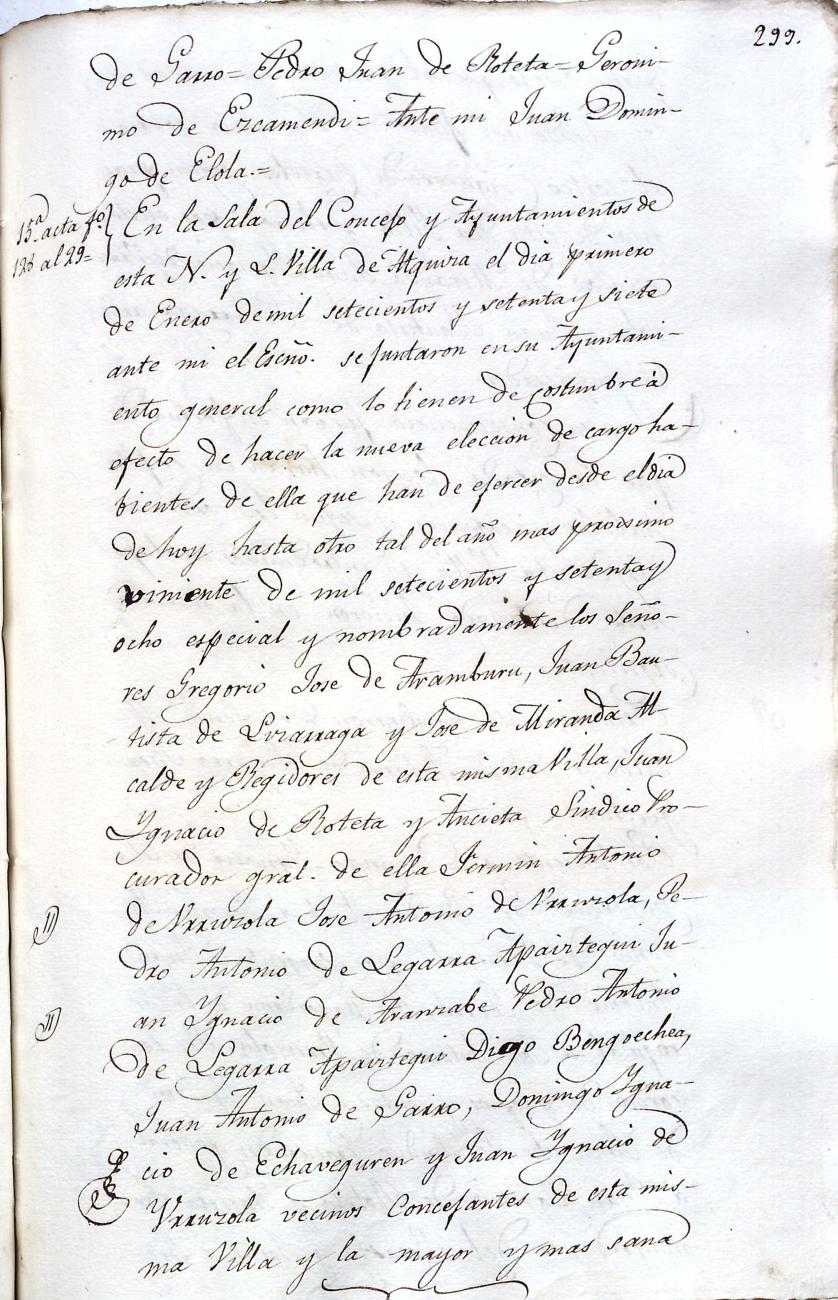 299.
de Garro = Pedro Juan de Roteta = Geroni-
mo de Ezcamendi = Ante mi Juan Domin-
go de Elola.=
15ª acta fº.
128 al 29=
En la Sala del Concejo y Ayuntamientos de
esta N. y L. Villa de Alquiza el dia primero
de Enero de mil setecientos y setenta y siete
ante mi el Escño. se juntaron en su Ayuntami-
ento general como lo tienen de costumbre à
efecto de hacer la nueva eleccion de cargo ha-
bientes de ella que han de ejercer desde el dia
de hoy hasta otro tal del año mas procsimo
viniente de mil setecientos y setenta y
ocho especial y nombradamente los Seño-
res Gregorio Jose de Aramburu, Juan Bau-
tista de Lviarraga y Jose de Miranda Al-
calde y Regidores de esta misma Villa, Juan
Ygnacio de Roteta y Ancieta Sindico Pro-
curador gral. de ella Fermin Antonio
de Vrruzola Jose Antonio de Vrruzola, Pe-
dro Antonio de Legarra Apaiztegui Ju-
an Ygnacio de Aranzabe Pedro Antonio
de Legarra Apaiztegui Diego Bengoechea,
Juan Antonio de Garro, Domingo Ygna-
cio de Echaveguren y Juan Ygnacio de
Vrruzola vecinos Concejantes de esta mis-
ma Villa y la mayor y mas sana